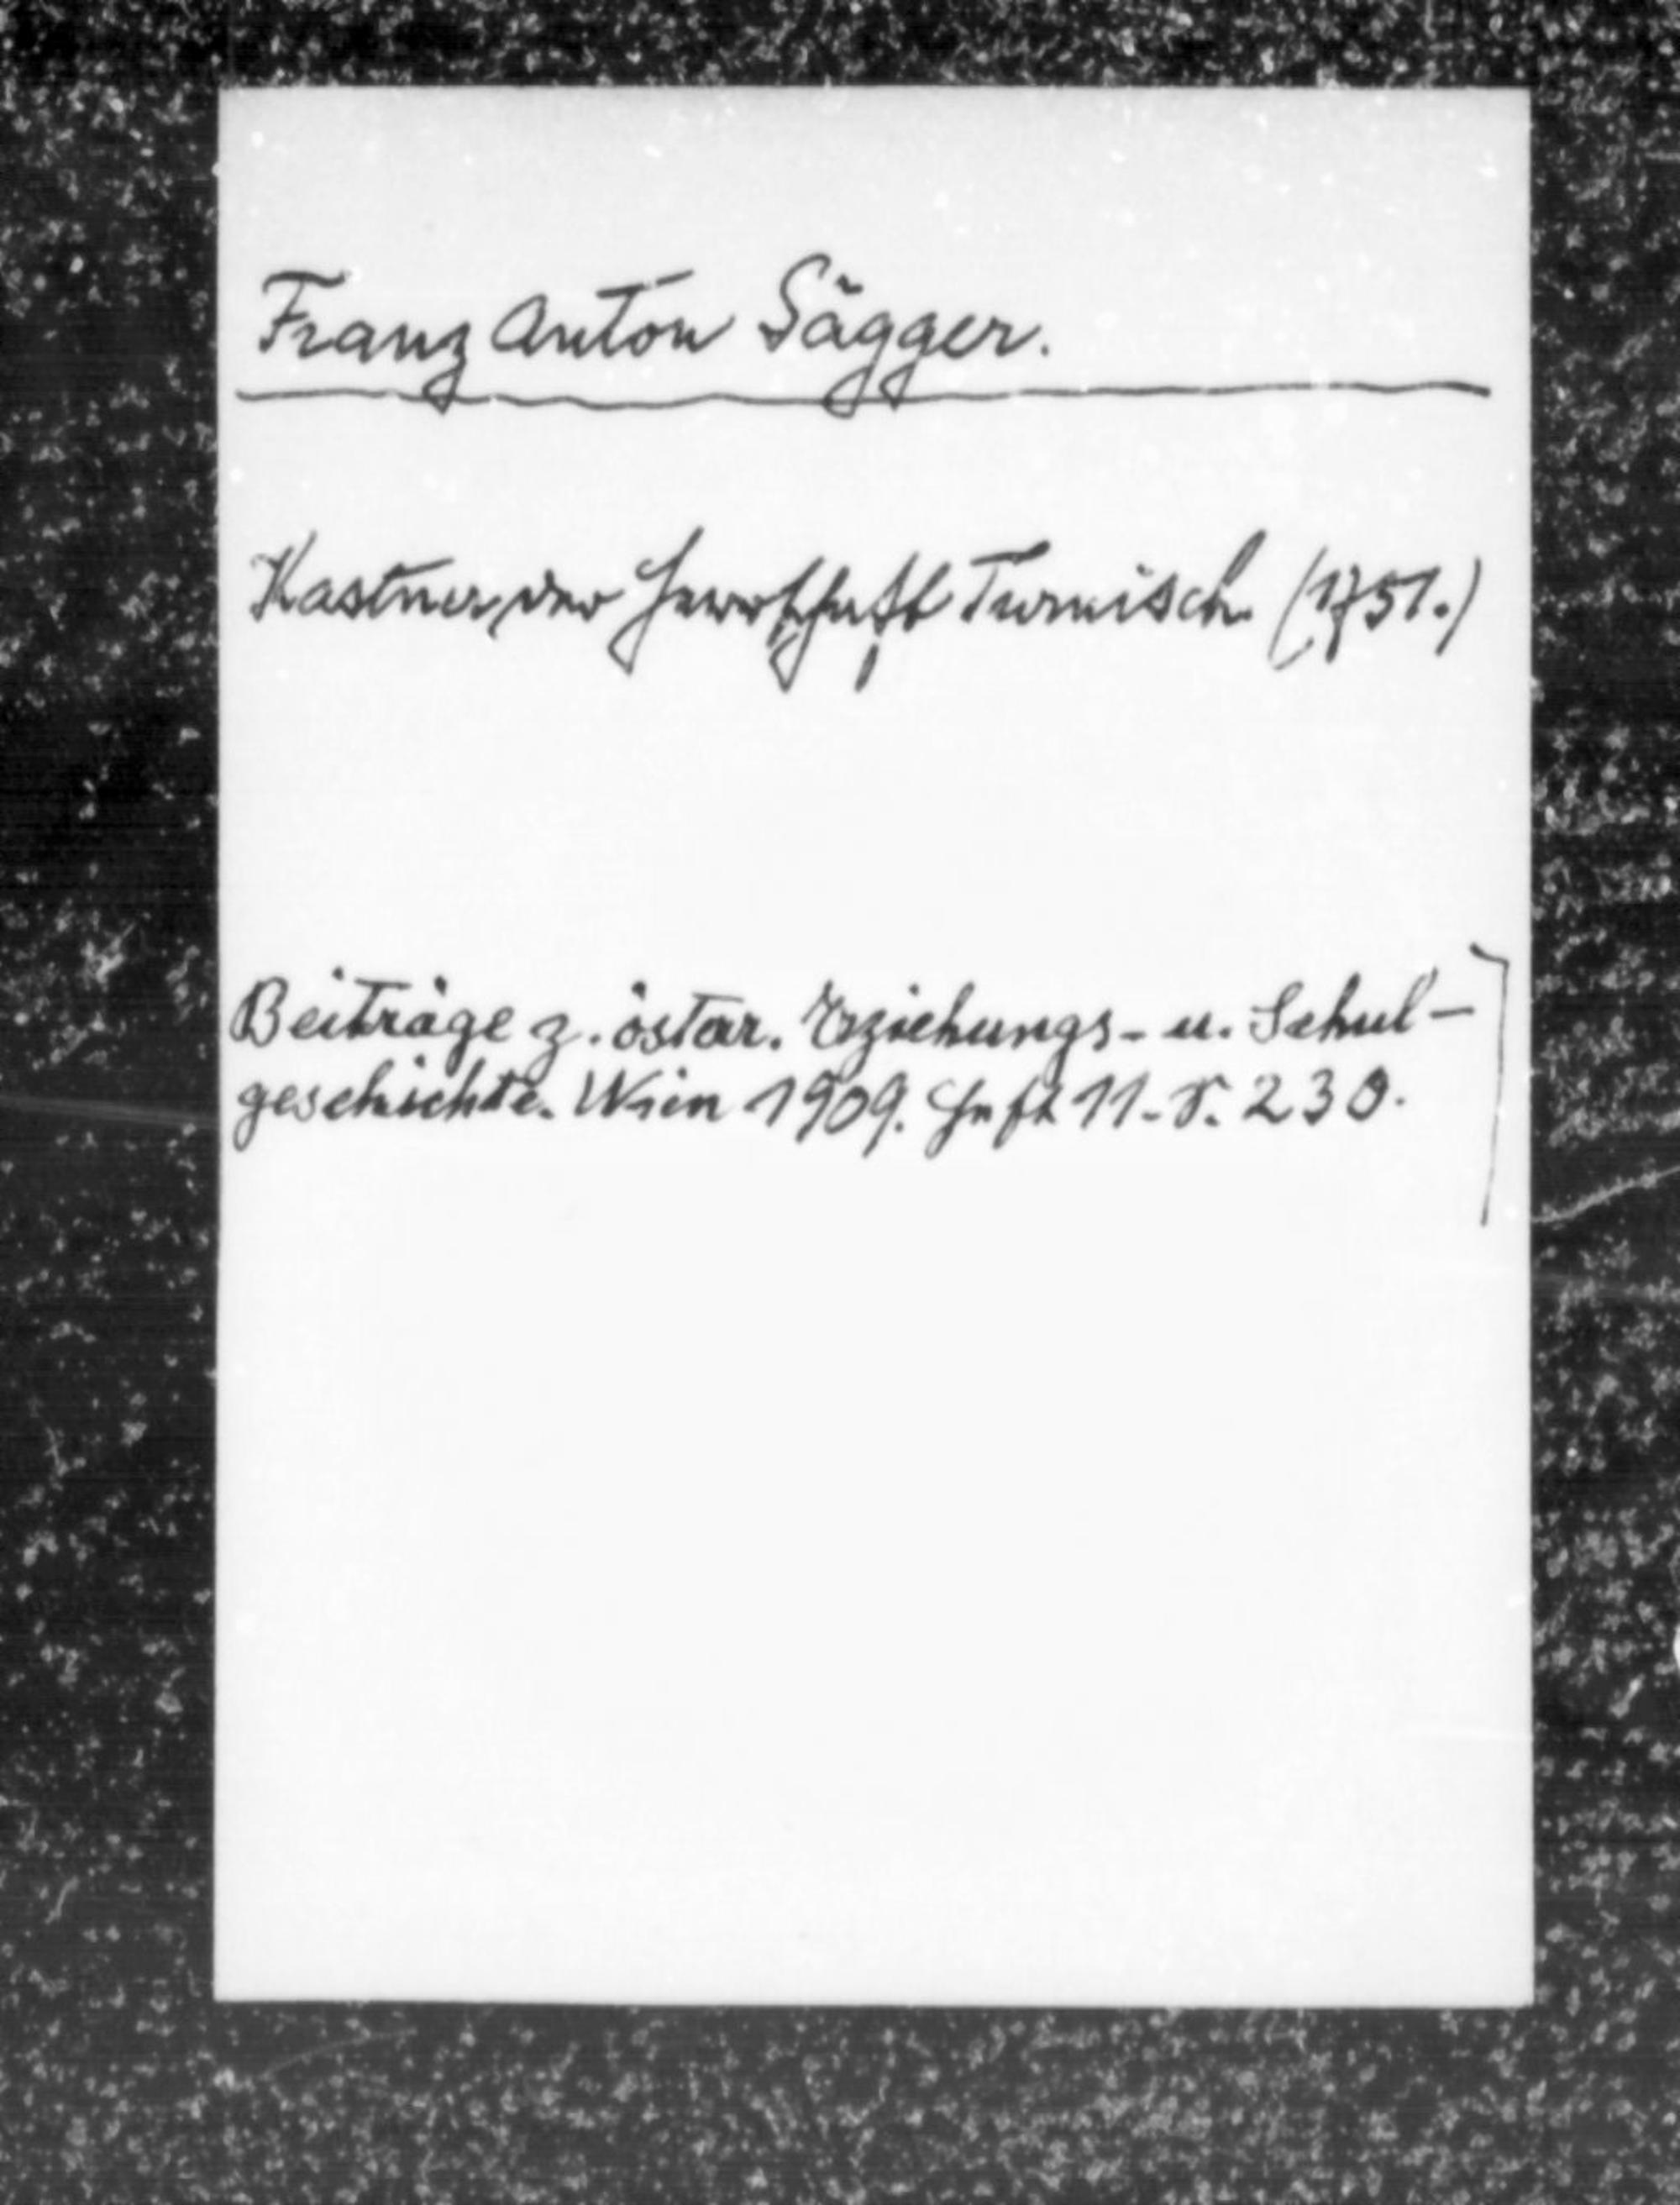 Franz Anton Sägger.
Kastner der Herrschaft Turnisch (1751.)
Beiträge z. österr. Erziehungs- u. Schul-
geschichte. Wien 1909. Heft 11. S. 230.